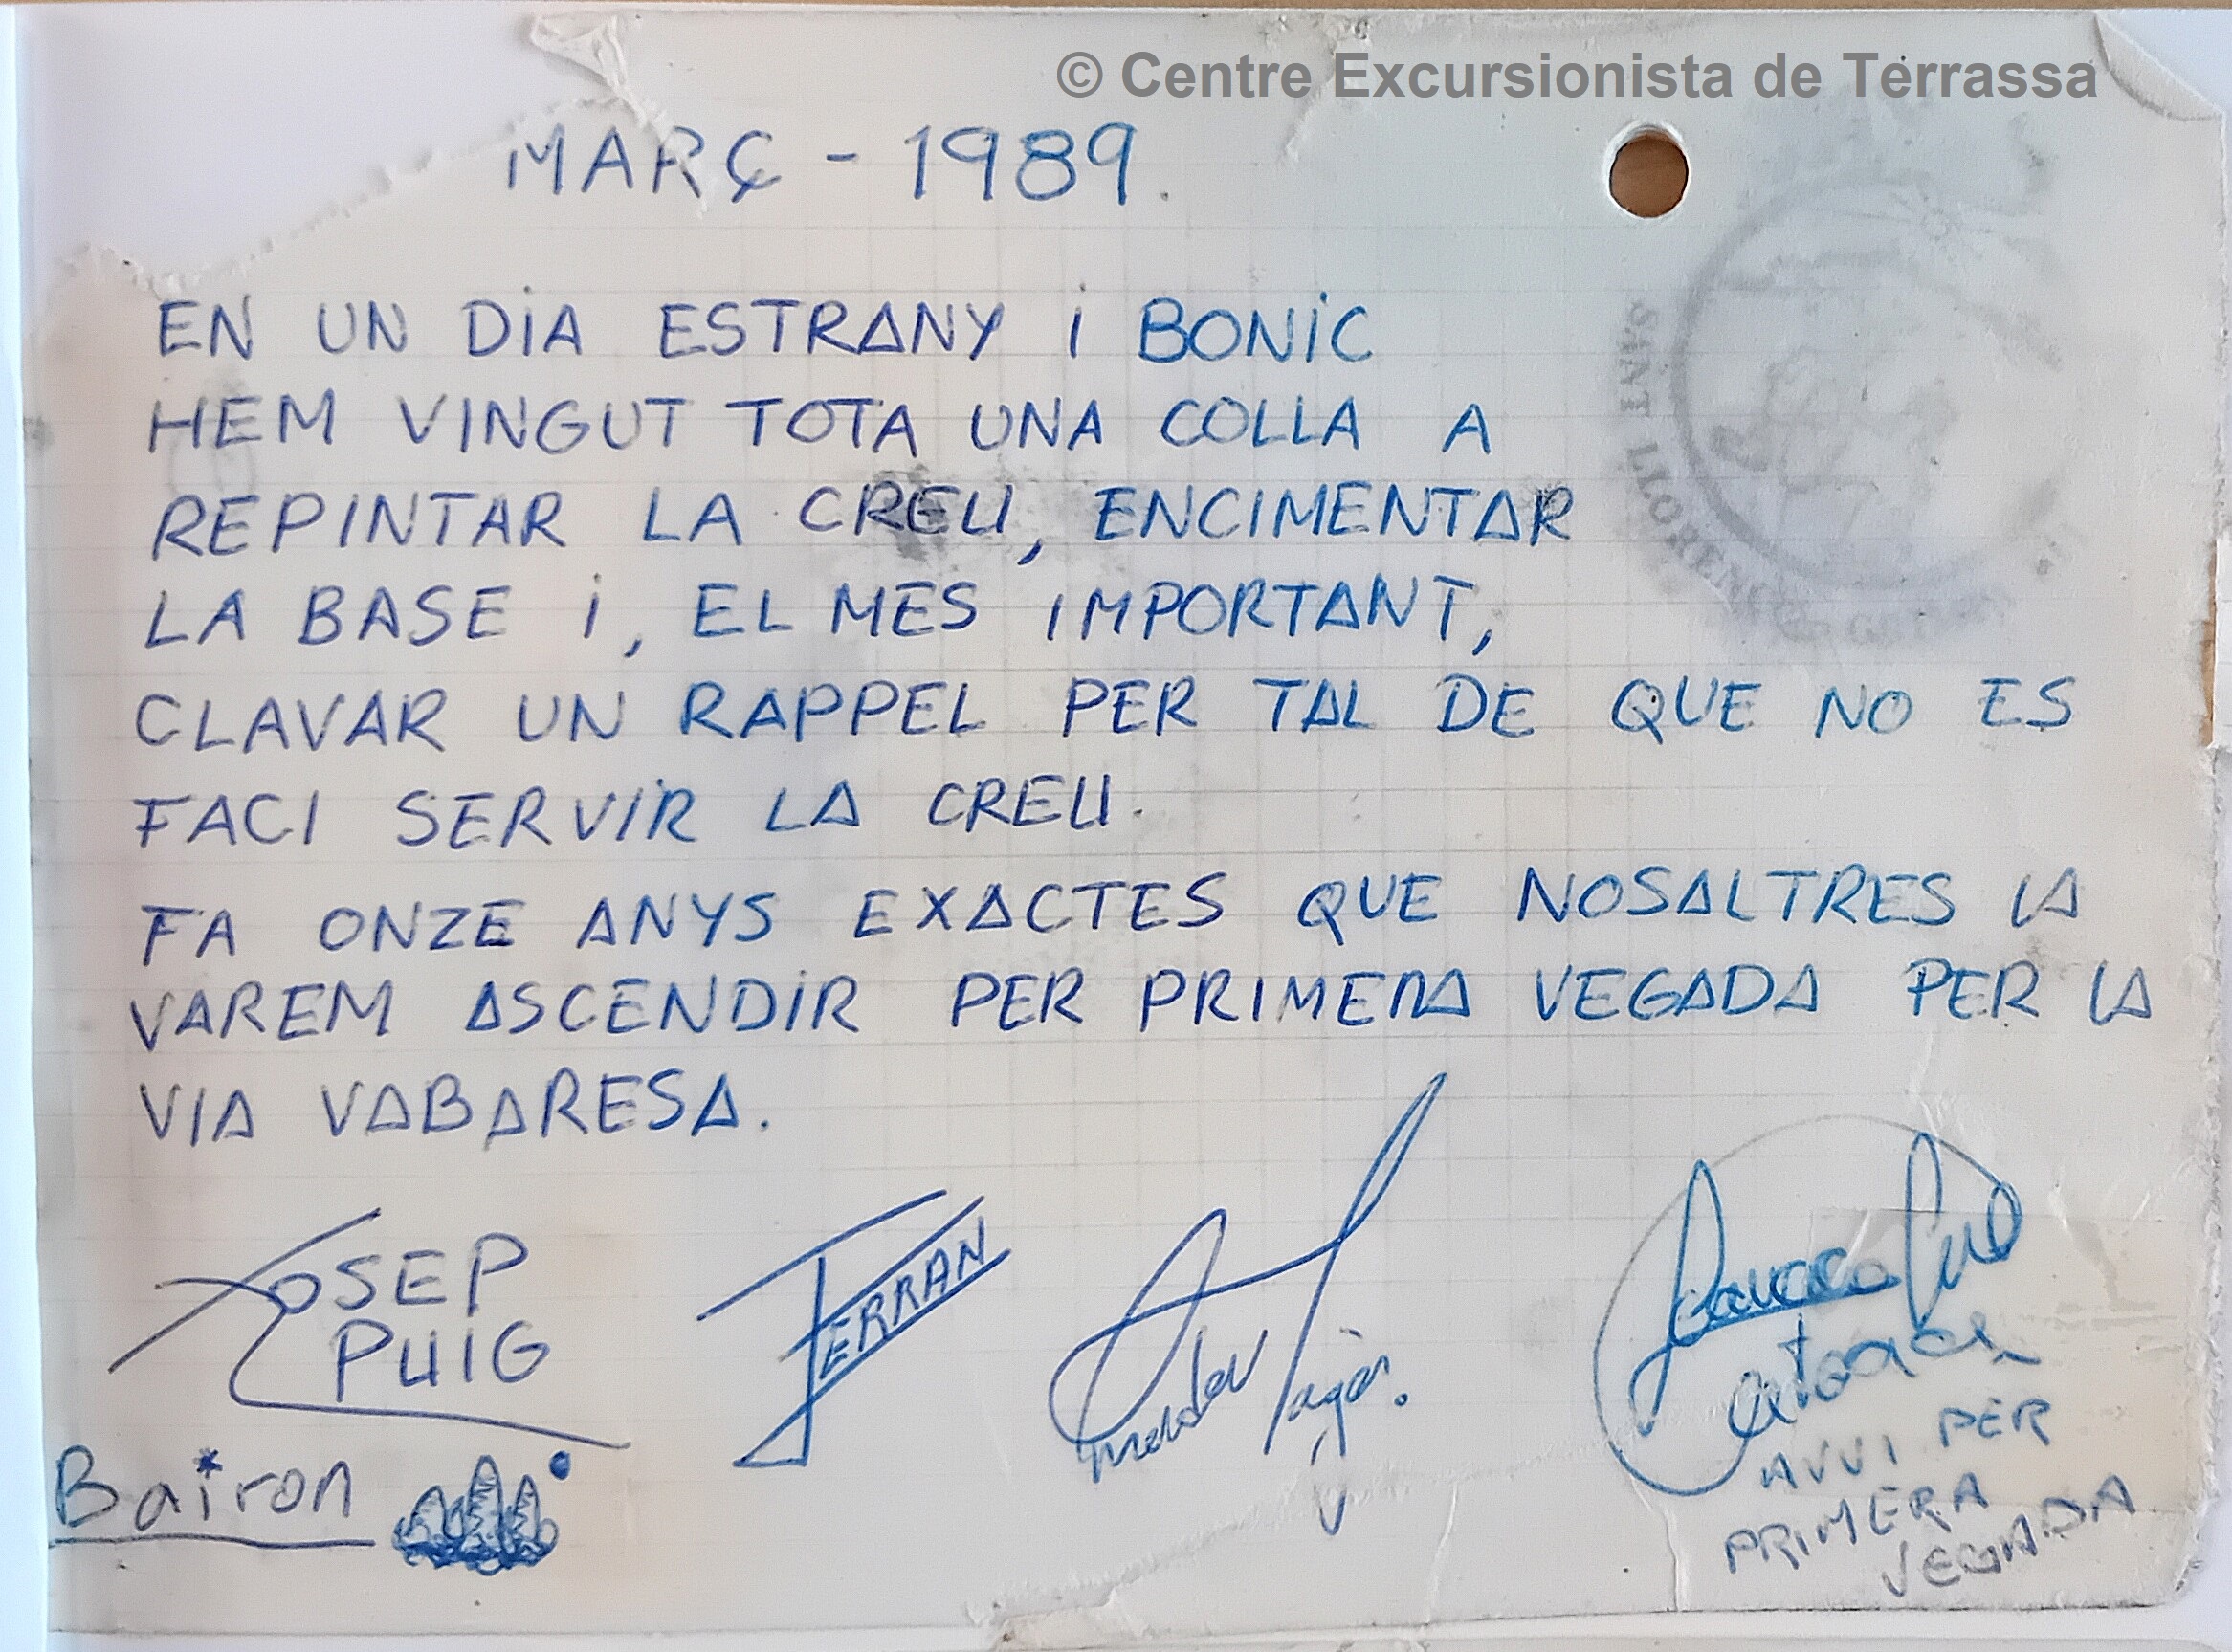 © Centre Excursionista de Terrassa
MARÇ - 1989.
EN UN DIA ESTRANY I BONIC
HEM VINGUT TOTA UNA COLLA A
REPINTAR LA CREU, ENCIMENTAR
LA BASE I, EL MES IMPORTANT,
CLAVAR UN RAPPEL PER TAL DE QUE NO ES
FACI SERVIR LA CREU.
FA ONZE ANYS EXACTES QUE NOSALTRES LA
VAREM ASCENDIR PER PRIMERA VEGADA PER LA
VIA VABARESA.
JOSEP
PUIG
FERRAN
Bairon
AVUI PER
PRIMERA
VEGADA
SANT LLORENÇ